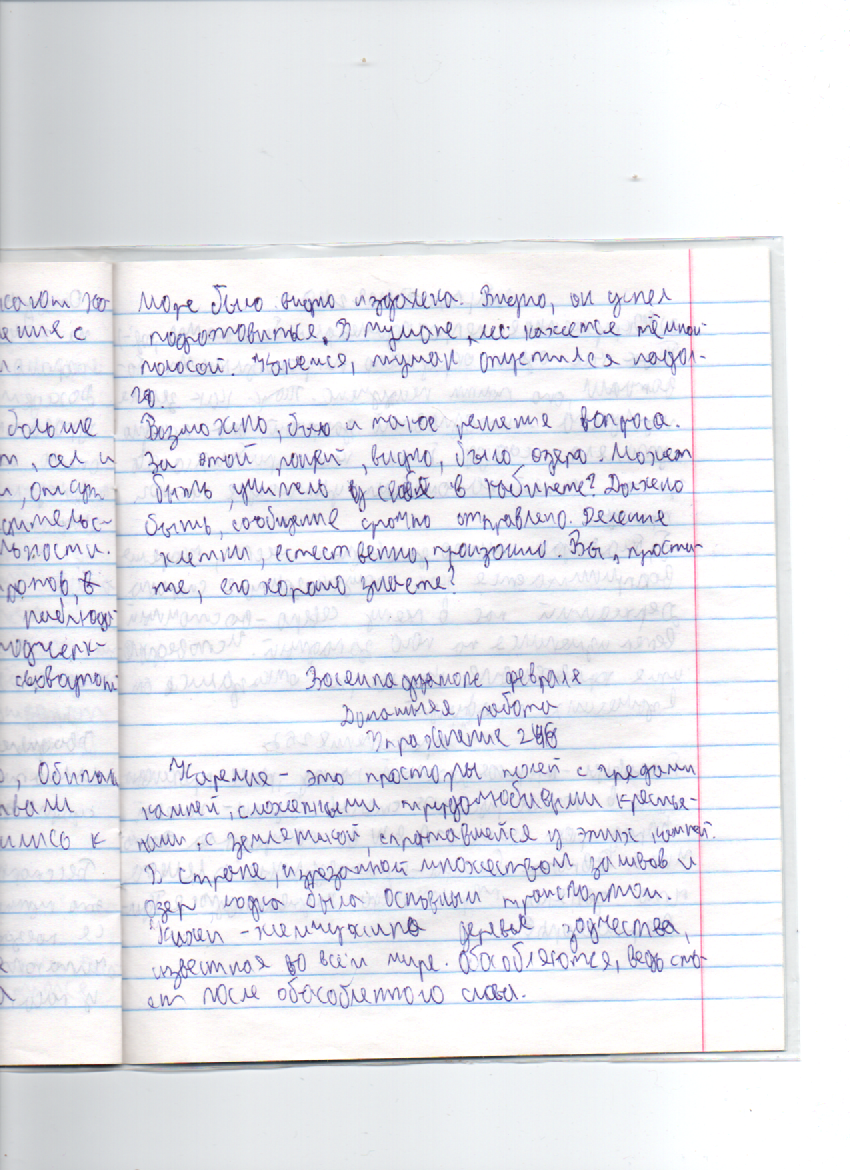 сают хо-
ения с
больше
т, сел и
льности.
ротов, в
наблюда
подчерк-
, Обитан
твали
ились к
Море было видно издалека. Видно, он успел
подготовиться. В тумане, лес кажется тёмной
полосой. Кажется, туман опустился надол-
го.
Возможно, было и такое решение вопроса.
За этой рощей, видно, было озеро. Может
быть, учитель у себя в кабинете? Должно
быть, сообщение срочно отправлено. Деление
клетки, естественно, произошло. Вы, прости-
те, его хорошо знаете?
Восемнадцатое февраля
Домашняя работа
Упражнение 246
Карелия - это просторы полей с грядами
камней, сложенными трудолюбивыми крестья-
нами, с земляникой, спрятавшейся у этих камней.
В стране, изрезанной множеством заливов и
озёр лодка была основным транспортом.
Кижи - жемчужина деревян зодчества,
известная во всём мире. Обособляются, ведь сто-
ят после обособленного слова.